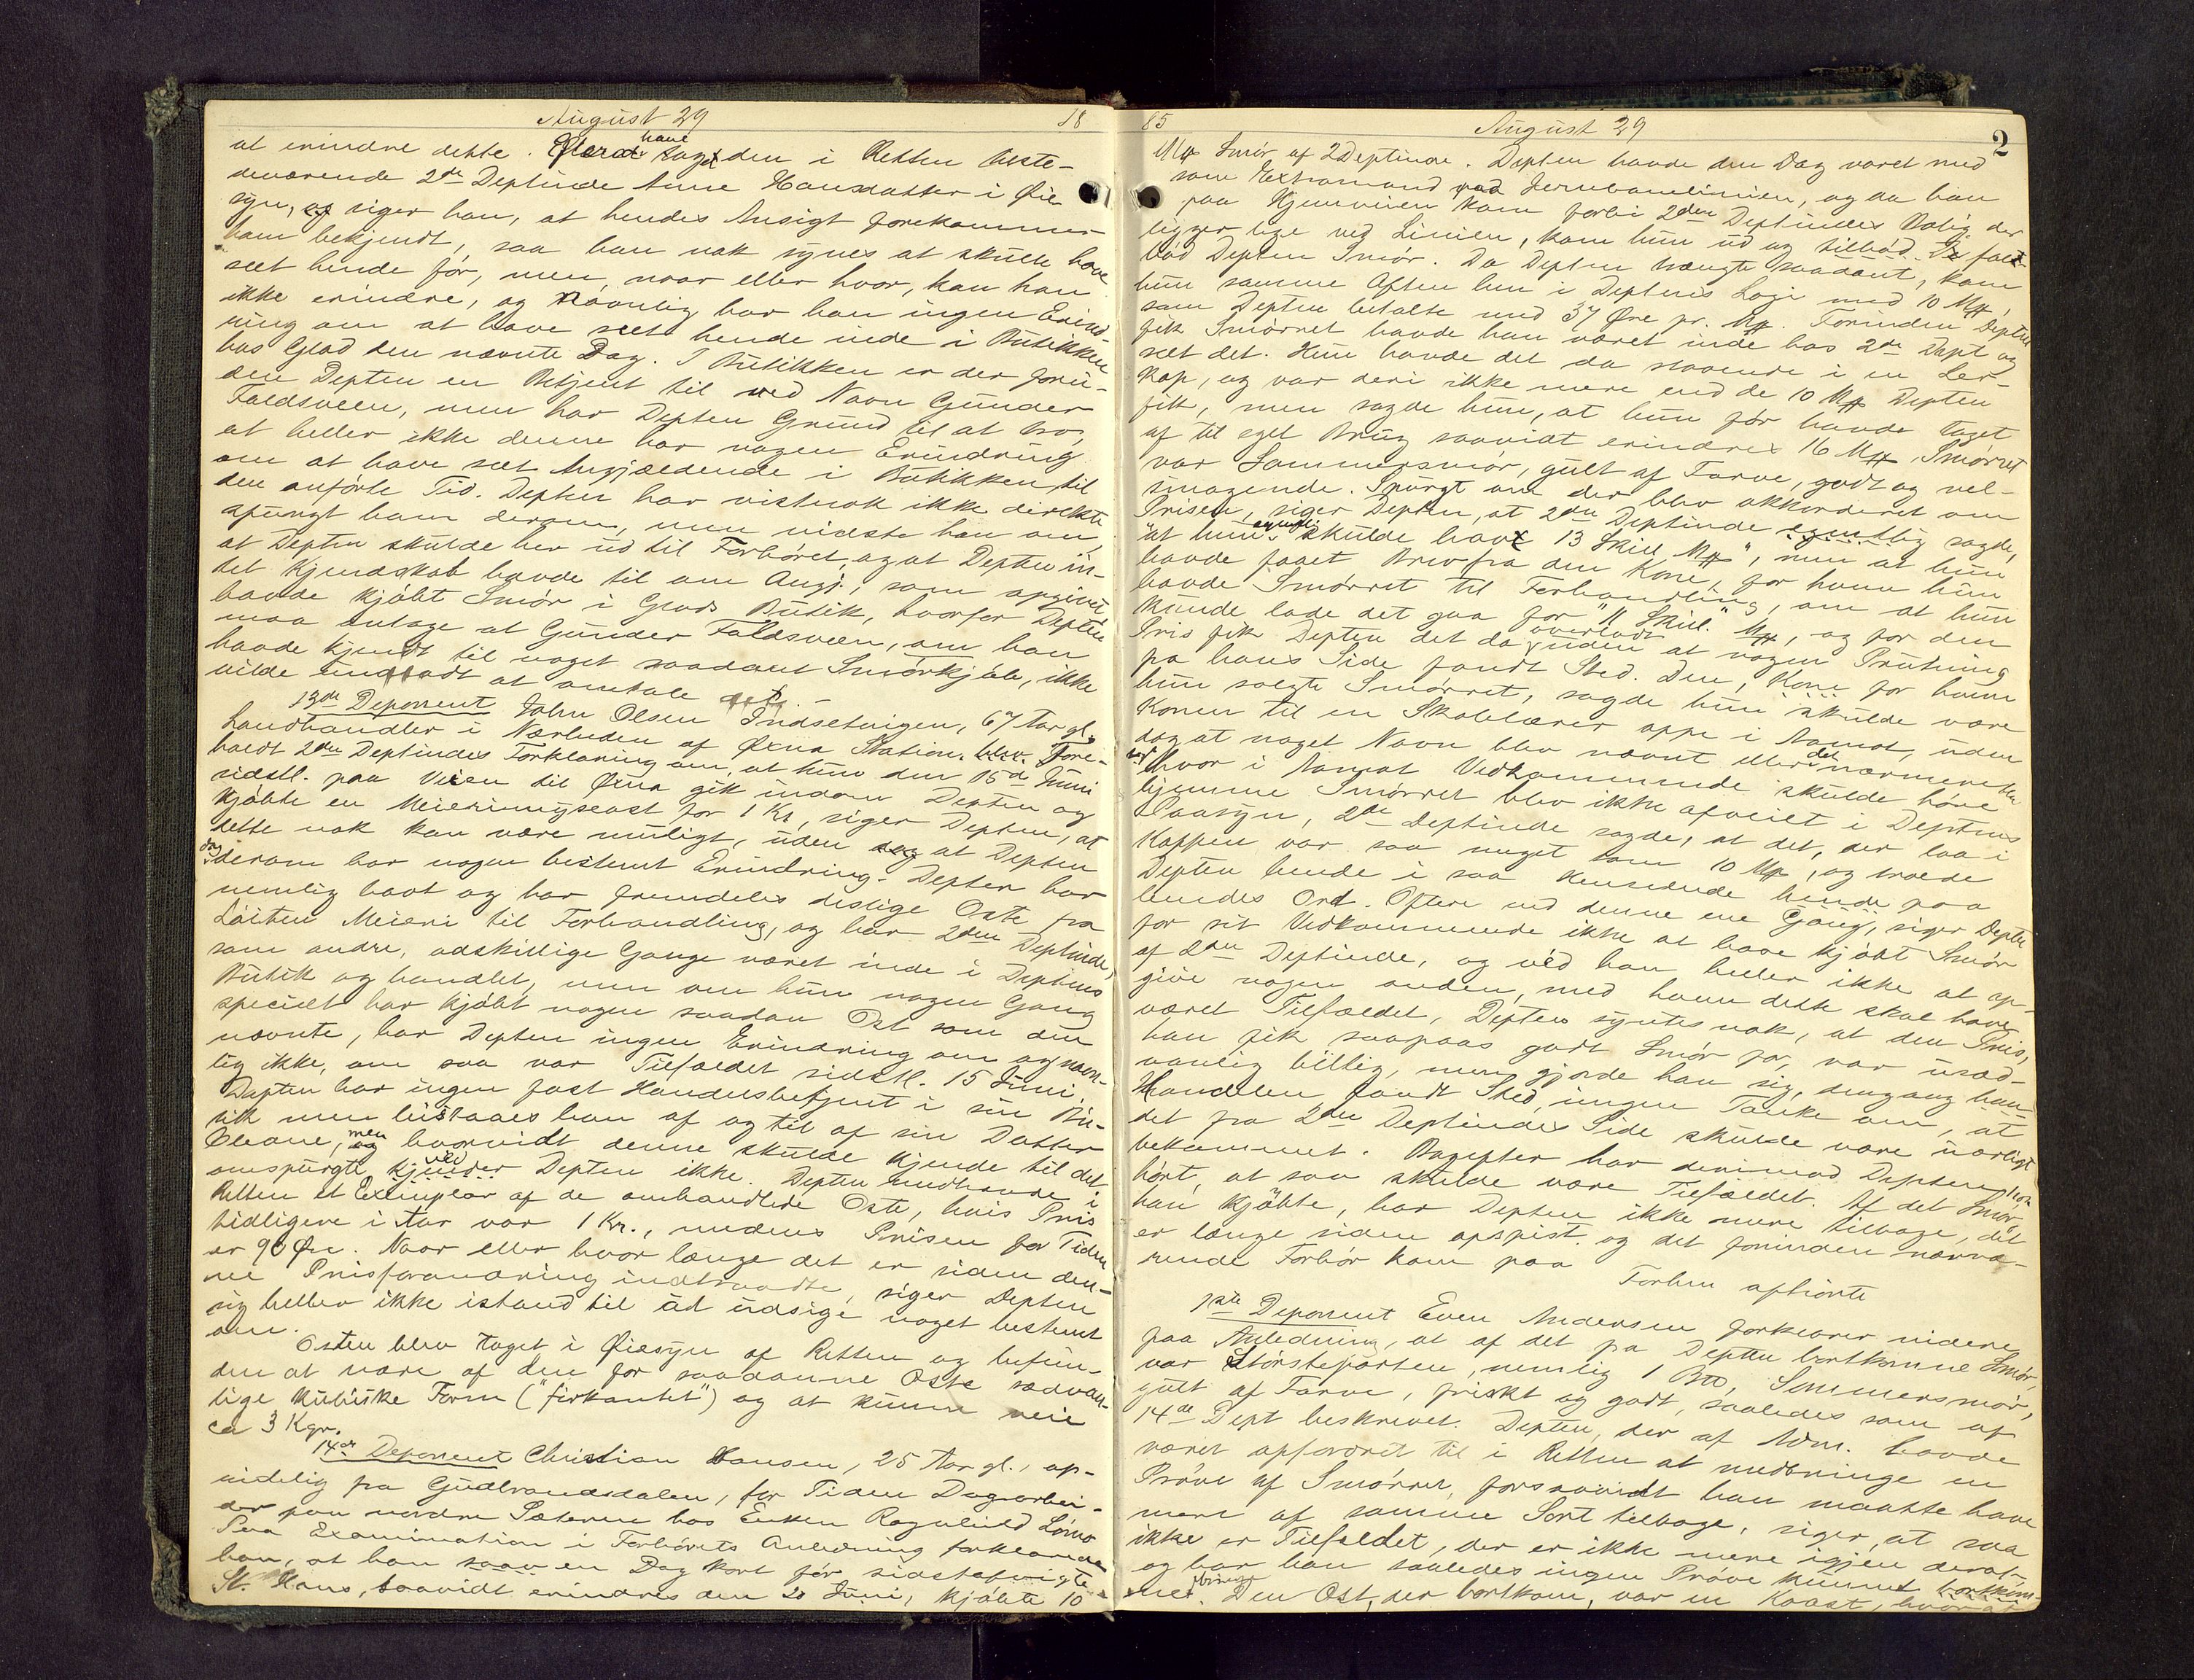 August 29 18
at erindre dette. Efterat have taget den i Retten tilste-
deværende 2de Deptinde Anne Hansdatter i Øie
syn, og siger han, at hendes Ansigt forekommer
ham bekjendt, saa han nok synes at skulle have
seet hende før, men, naar eller hvor, kan han
ikke erindre, og navnlig har han ingen Erind-
ring om at have seet hende inde i Butikken
hos Glad den nævnte Dag. I Butikken er der foru-
den Depten en Betjent til ved Navn Gunder
Faldsveen, men har Depten Grund til at tro,
at heller ikke denne har nogen Erindring
om at have seet Angjældende i Butikken til
den anførte Tid. Depten har vistnok ikke direkte
spurgt ham derom, men vidste han om,
at Depten skulde her ud til Forhøret, og at Depten in-
tet Kjendskab havde til om Angj., som opgivet
havde kjøbt Smør i Glads Butik, hvorfor Depten
maa antage at Gunder Faldsveen, om han
havde kjendt til noget saadant Smørkjøb, ikke
vilde undladt at omtale det. -
13de Deponent John Olsen Indsetvigen, 67 Aar gl.
Landhandler i Nærheden af Øxna Station. blev Fore-
holdt 2den Deptindes Forklaring om, at hun den 15de Juni
sidstl. paa Veien til Øxna gik indom Depten og
kjøbte en Meierimyseost for 1 Kr, siger Depten, at
dette nok kan være muligt, uden at Depten
dog derom har nogen bestemt Erindring. Depten har
nemlig havt og har fremdeles deslige Oste fra
Løiten Meieri til Forhandling, og har 2den Deptinde,
som andre, adskillige Gange været inde i Deptens
Butik og handlet, men om hun nogen Gang
specielt har kjøbt nogen saadan Ost som den
nævnte, har Depten ingen Erindring om og navn-
lig ikke, om saa var Tilfældet sidstl. 15 Juni.
Depten har ingen fast Handelsbetjent i sin Bu-
tik men bistaaes han af og til af sin Datter
Oleane, men hvorvidt denne skulde kjende til det
omspurgte, ved Depten ikke. Depten medhavde i
Retten et Exemplar af de omhandlede Oste, hvis Pris
tidligere i Aar var 1 Kr., medens Prisen for Tiden
er 90 Øre. Naar eller hvor længe det er siden den-
ne Prisforandring indtraadte, siger Depten
sig heller ikke istand til at udsige noget bestemt
om.
Osten blev taget i Øiesyn af Retten og befun-
den at være af den for saadanne Oste sædvan-
lige kubiske Form ("firkantet") og at kunne veie
ca 3 Kgr.
14de Deponent Christian Hansen, 25 Aar gl., op-
rindelig fra Gudbrandsdalen, for Tiden Dagarbei-
der paa nordre Sæteren hos Enken Ragnhild Lømo
Paa Examination i Forhørets Anledning forklarede
han, at han saav en Dag kort før sidstafvigte
St. Hans, saavidt erindres den 20 Juni, kjøbte 10
85 August 29 2
M# Smør af 2Deptinde. Depten havde den Dag været med
som Extramand ved Jernbanelinien, og da han
paa Hjemveien kom forbi 2den Deptindes Bolig der
ligger lige ved Linien, kom hun ud og tilbød De fal-
bød Depten Smør. Da Depten trængte saadant, kom
hun samme Aften hen i Deptens Logi med 10 M#,
som Depten betalte med 37 Øre pr. M#. Forinden Depten
fik Smørret havde han været inde hos 2de Dept og
seet det. Hun havde det da staaende i en Ler-
kop, og var deri ikke mere end de 10 M# Depten
fik, men sagde hun, at hun før havde taget
af til eget Brug saavidt erindres 16 M# Smørret
var Sommersmør, gult af Farve, godt og vel-
smagende. Spurgt om der blev akkorderet om
Prisen, siger Depten, at 2den Deptinde egentlig sagde,
"at hun egentlig skulde have 13 Skill M#", men at hun
havde faaet Brev fra den Kone, for hvem hun
havde Smørret til Forhandling, om at hun
kunde lade det gaa for "11 Skill." M#, og for den
Pris fik Depten det da overladt uden at nogen Prutning
pa hans Side fandt Sted. Den Kone for hvem
hun solgte Smørret, sagde hun skulde være
Konen til en Skolelærer oppe i Aamot, uden
dog at noget Navn blev nævnt eller det nærmere
hvor i Aamot Vedkommende skulde høre
hjemme Smørret blev ikke afveiet i Deptens
Paasyn, 2de Deptinde sagde, at det, der laa i
Koppen var saa meget som 10 M#, og troede
Depten hende i saa Henseende hende paa
hendes Ord. Oftere end denne ene Gang, siger Depten
for sit Vedkommende ikke at have kjøbt Smør
af 2den Deptinde, og ved han heller ikke at op-
give nogen anden, med hvem dette skal have
været Tilfældet, Depten syntes nok, at den Pris,
han fik saapaas godt Smør for, var usæd-
vanlig billig, men gjorde han sig, dengang Han-
Handelen fandt Sted, ingen Tanke om, at
det fra 2den Deptindes Side skulde være uærligt
bekommet. Bagefter har derimod Depten nok
hørt, at saa skulde være Tilfældet. Af det Smør,
han kjøbte, har Depten ikke mere tilbage, det
er længe siden opspist og det forinden nærvæ-
rende Forhør kom paa Forhen afhørte
1ste Deponent Even Andersen forklarer videre
paa Anledning, at af det fra Depten bortkomne Smør,
var Størsteparten, nemlig 1 , Sommersmør,
gult af Farve, friskt og godt, saaledes som af
14de Dept beskrevet. Depten, der af Adm. havde
været opfordret til i Retten at medbringe en
Prøve af Smørret, forsaavidt han maatte have
mere af samme Sort tilbage, siger, at saa
ikke er Tilfældet, der er ikke mere igjen deraf
og har han saaledes ingen Prøve kunnet bortkom-
met. Den Ost, der bortkom, var en